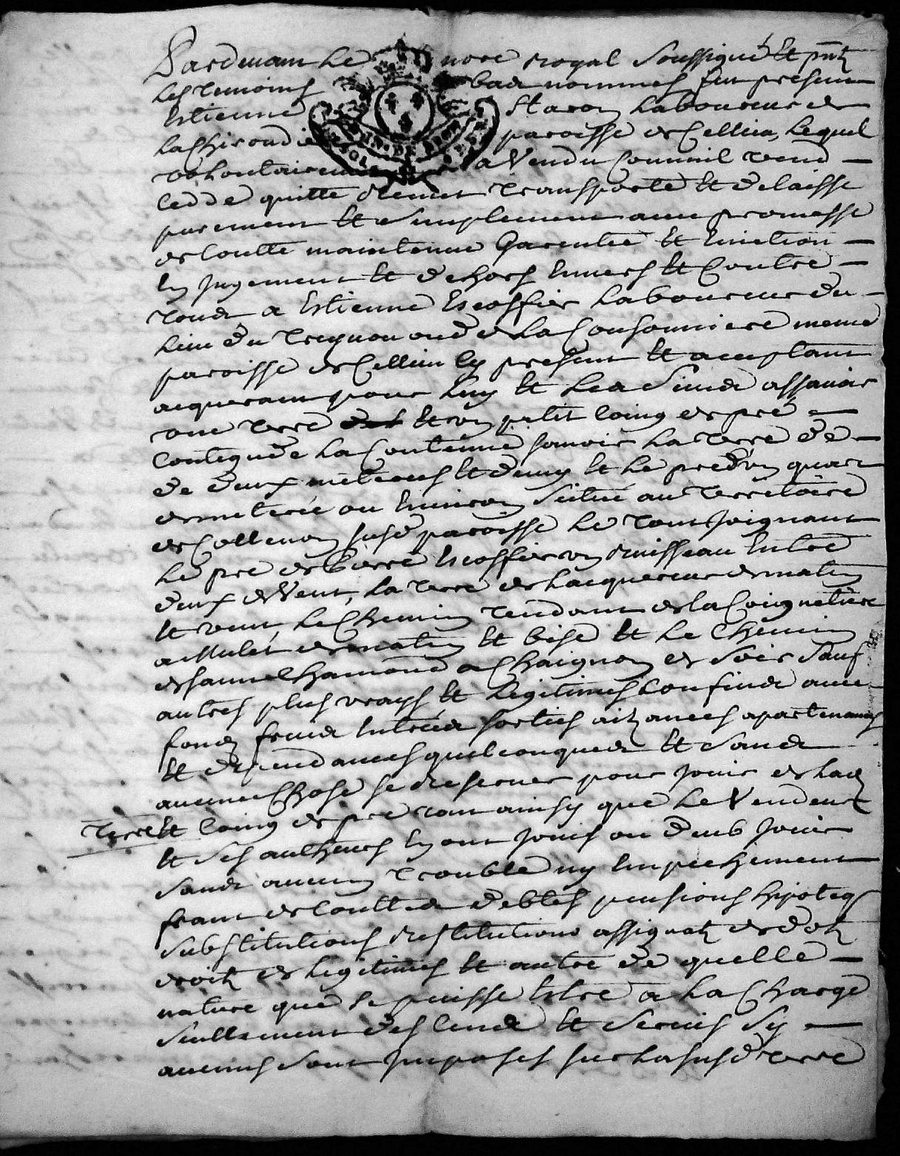 Pardevant Le nore Royal Soussigné Et pnts
Les Temoins bas nommes fut present
Estienne Laboureur de
La Chirond paroisse de Cellieu, Lequel
vollontairement a Vendu Comme il vend
cedde quitte Remet Transporte Et delaisse
purement Et simplement avec promesse
de toutte maintenue Garentie Et Eviction
En jugement Et dehors Envers Et Contre
Tous a Estienne Escoffier Laboureur du
Lieu du de La Consonniere meme
paroisse de Cellieu Ey present Et acceptant
acquerant pour Luy Et Les Siens assavoir
une Terre Et un petit Coing de pré
Contigus de La Contenue scavoir La Terre de
de deux meterees Et demy Et Le pre d'un quart
de meteree ou Environ Situé au Territoire
de Collenon susd paroisse Le Tout Joignant
Le pre de pierre Escoffier un Ruisseau Entre
deux de Vent, La Terre de Lacquereur de matin
Et vent, Le Chemin Tendant de la Coignetiere
a Mulet de matin Et bize Et Le Chemin
de Sainct Chamond a Chaignon de Soir Sauf
autres plus vrays Et Legitimes Confins avec
fonds fruits Entrées sorties aizances apartenances
Et dependances quelconques Et Sans
aucune Chose se Reserver pour Jouir de Lad
Terre Et Coing de pre Tout ainsy que Le Vendeur
Et Ses autheurs En ont Jouis ou deub Jouir
Sans aucun Trouble ny Empechement
franc de touttes debtes pensions hipoteqs
Substitutions Restitutions assignats de dot
droits de Legitimes Et autre de quelle
nature que se puisse Estre a La Charge
Seullement des Cens Et Servis Sy
aucuns Sont Imposes sur La susd Terre